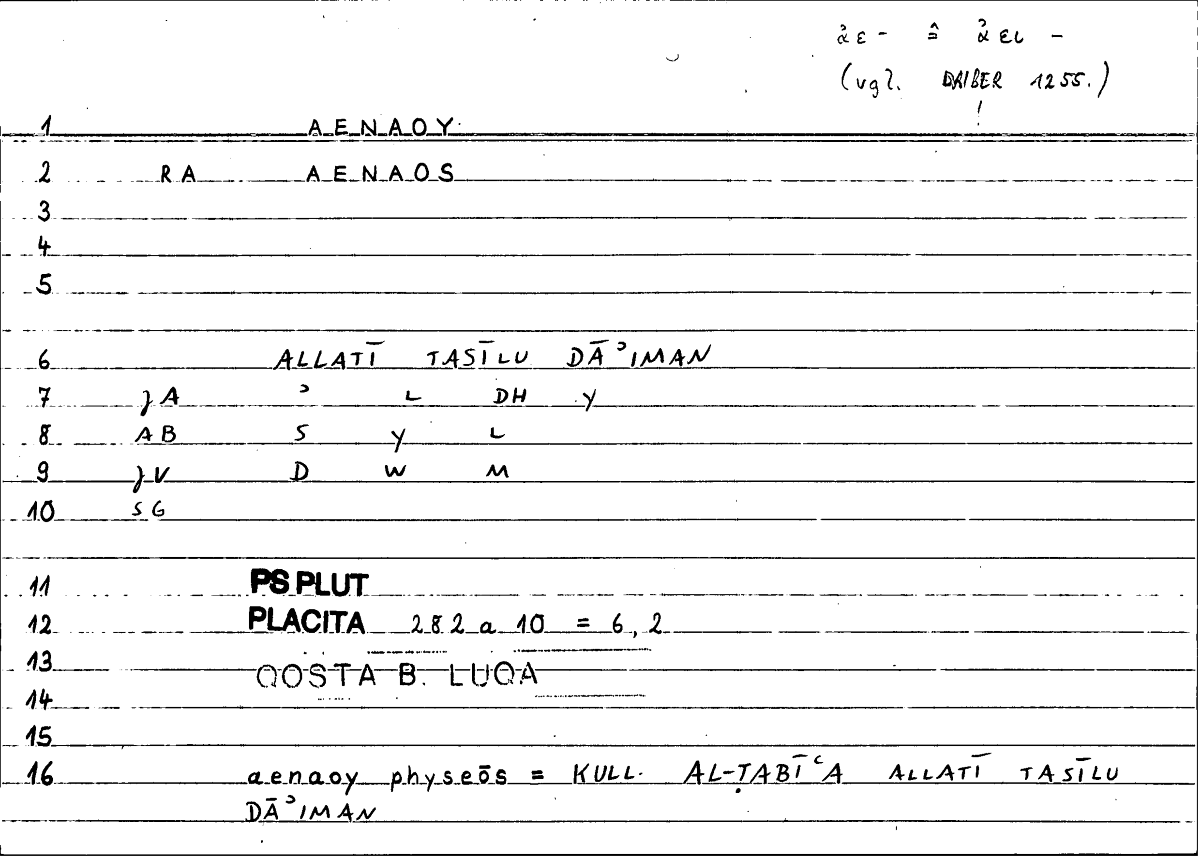 ἀε- ≙ ἀει -
(vgl. DAIBER 1255.)
1 AENAOY
2 RA AENAOS
3
4
5
6 ALLATĪ TASĪLU DĀʾIMAN
7 ʒA ʾ L DH Y
8 AB S Y L
9 ʒV D W M
10 SG
11 PS PLUT
12 PLACITA 282 a 10 = 6,2
13 QOSTA B. LUQA
14
15
16 aenaoy physeōs = KULL. AL-ṬABĪʿA ALLATĪ TASĪLU
DĀʾIMAN